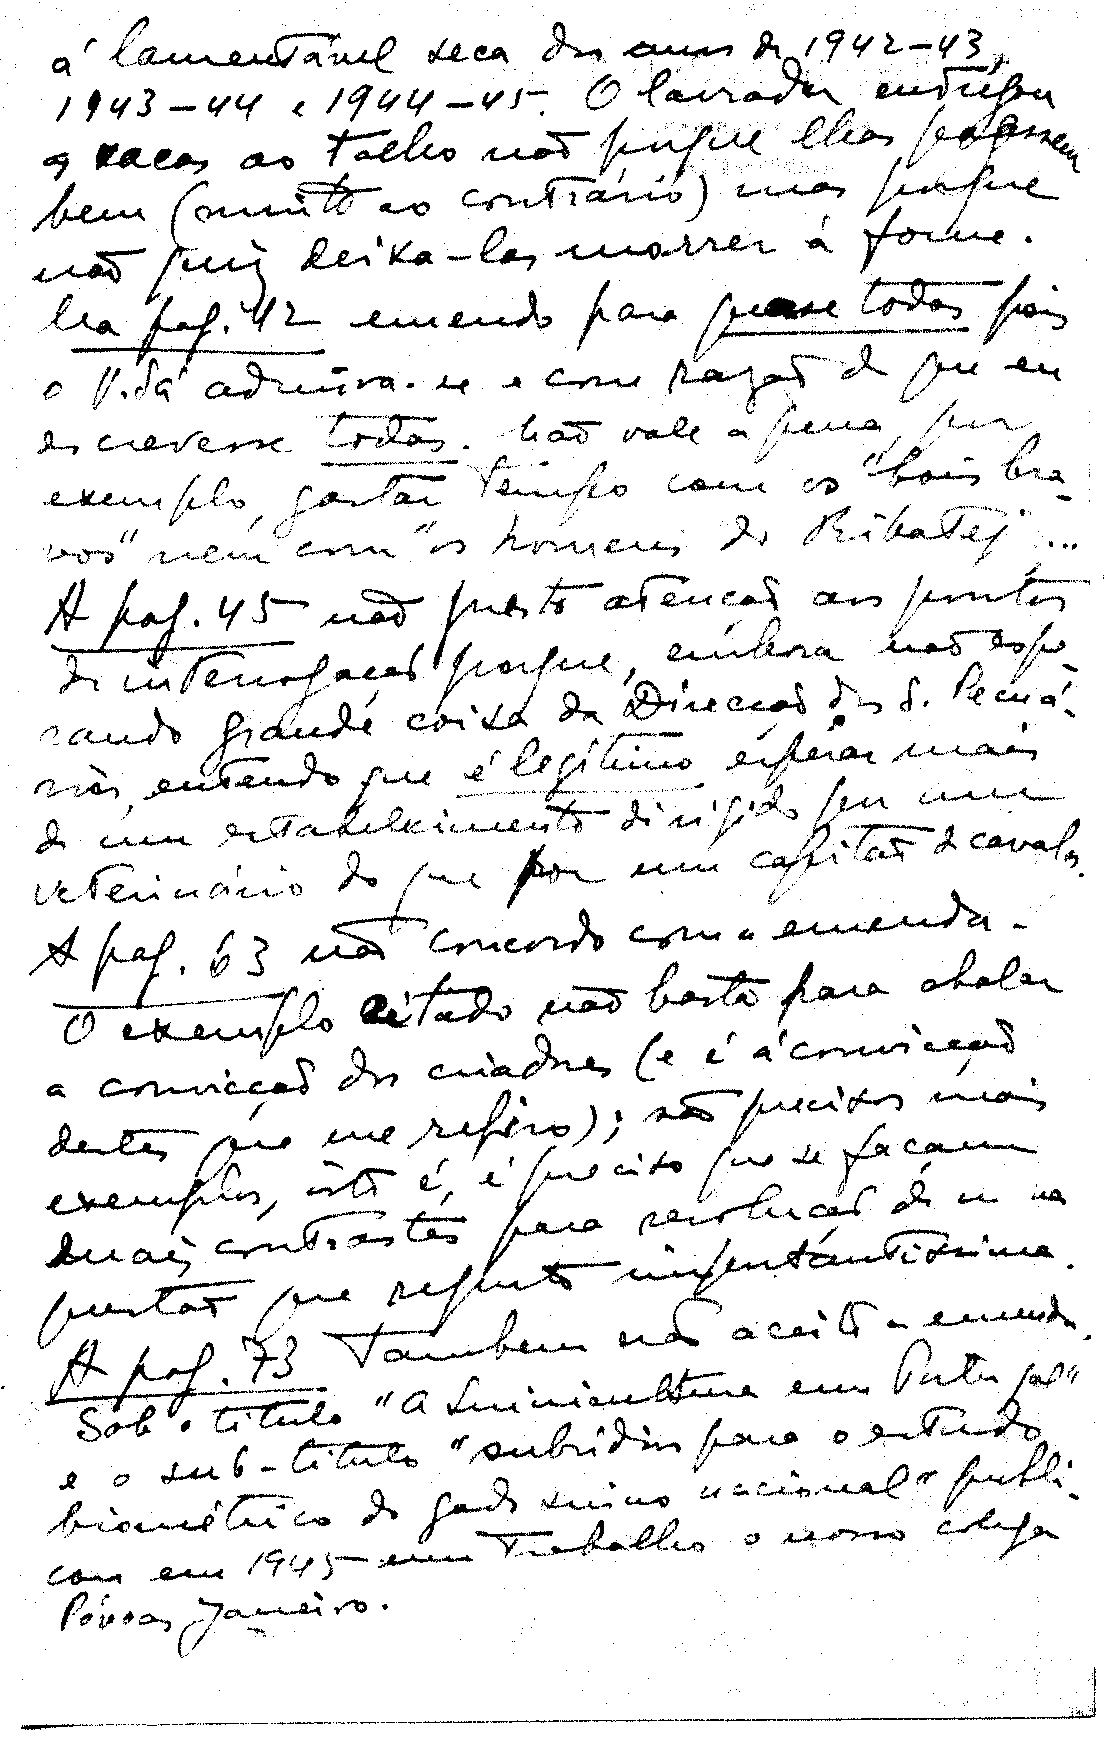 á lamentável seca dos anos de 1942-43,
1943-44 e 1944-45. O lavrador entregou
as vacas ao talho não porque lhas pagassem
bem (muito ao contrário) mas porque
não quiz deixa-las morrer á fome.
Na pag. 42 emendo para quase todas pois
o V. Sá admira-se e com razão de que eu
escrevesse todas. Não vale a pena, por
exemplo, gastar tempo com os "bois bra-
vos" nem com "os homens do Ribatejo"...
A pag. 45 não presto atenção aos pontos
de interrogação porque, embora não espe-
rando grande coisa da Direcção dos S. Pecuá-
rios, entendo que é legítimo esperar mais
de um estabelecimento dirigido por um
veterinário do que por um capitão de cavalos.
A pag. 63 não concordo com a emenda.
O exemplo citado não basta para abalar
a convicção dos criadores (e é á convicção
destes que me refiro); são precisos mais
exemplos, isto é, é preciso que se façam
mais contrastes para resolução de um a
questão que reputo importantíssima.
A pag. 73 Tambem não aceito a emenda.
Sob o titulo "A Suinicultura em Portugal"
e o sub-titulo "subsídios para o estudo
biométrico do gado suino nacional" publi-
cou em 1945 um trabalho o nosso colega
Póvoas Janeiro.